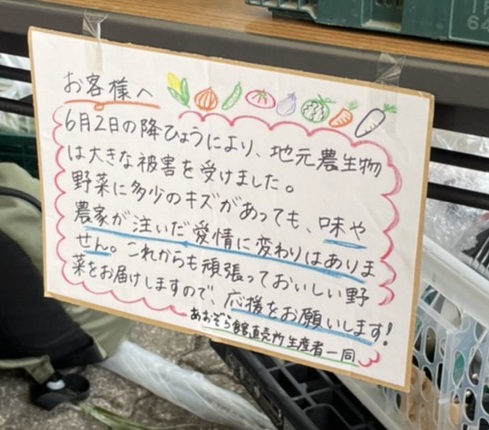 お客様へ
6月2日の降ひょうにより、地元農生物
は大きな被害を受けました。
野菜に多少のキズがあっても、味や
農家が注いだ愛情に変わりはありま
せん。これからも頑張っておいしい野
菜をお届けしますので、応援をお願いします!
あおぞら館直売所生産者一同